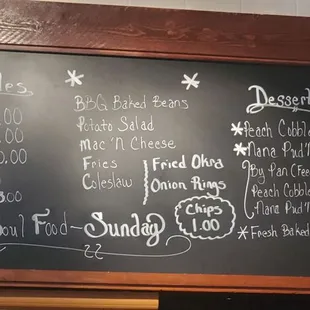 les
.00
.00
0.00
.00
BBG Baked Beans
Potato Salad
Mac 'N Cheese
Fries
Coleslaw
Fried Okra
Onion Rings
Chips
1.00
Soul Food - Sunday
Dessert
Peach Cobble
Nana Pud'N
By Pan (Fee
Peach Cobble
Nana Pud'N
Fresh Baked